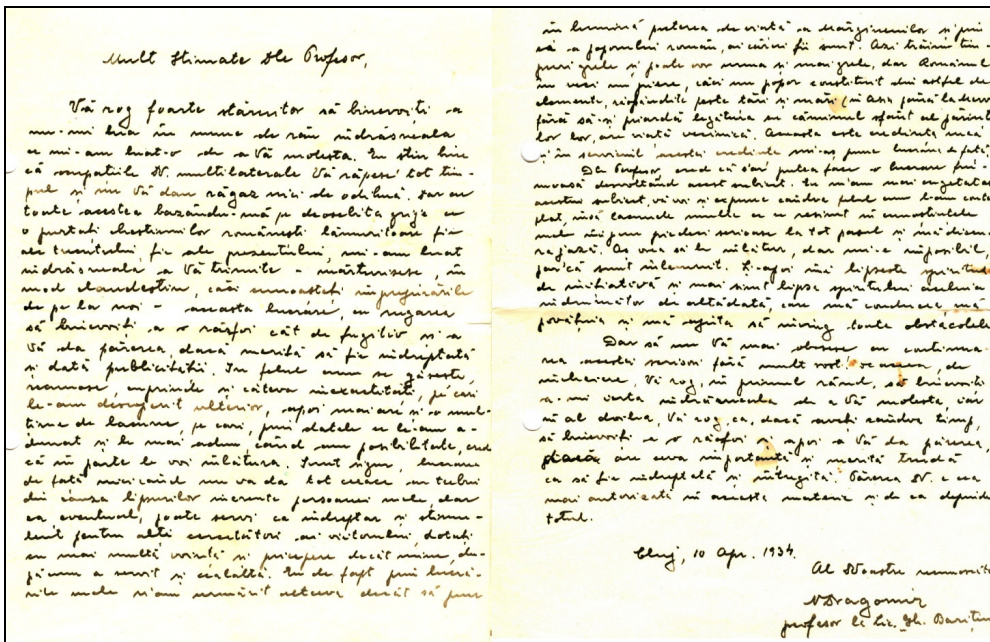 Mult Stimate Dle Profesor,
Vă rog foarte stăruitor să binevoiți a
nu-mi lua în nume de rău îndrăsneala
ce mi-am luat-o de a Vă molesta. Eu știu bine
că ocupațiile Dv. multilaterale Vă răpesc tot tim-
pul și nu Vă dau răgaz nici de odihnă. Dar cu
toate acestea bazându-mă pe deosebita grije ce
o purtați chestiunilor românești lămuritoare fie
ale trecutului, fie ale prezentului, mi-am luat
îndrăsneala a Vă trimite - mărturisesc, în
mod clandestin, căci cunoașteți împrejurările
de pe la noi - aceasta lucrare, cu rugarea
să binevoiți a o răsfoi cât de fugitiv și a
Vă da părerea, dacă merită să fie îndreptată
și dată publicității. În felul cum se găsește,
cuprinde și câteva inexactități, pe cari
le-am descoperit ulterior, apoi mai are și o mul-
țime de lacune, pe cari, prin datele ce le-am a-
dunat și le mai adun când am posibilitate, cred
că în parte le voi înlătura. Sunt sigur, lucrarea
de față nici când nu va da tot ceeace ar trebui
din cauza lipsurilor inerente persoanei mele, dar
ca eventual, poate servi ca îndreptar și stimu-
lent pentru alți cercetători ai viitorului, dotați
cu mai multă voință și pricepere decât mine, du-
pă cum a servit și cealaltă. Eu de fapt prin lucră-
rile mele n'am urmărit altceva decât să pun
în lumină puterea de viață a mărginenilor și prin
ei a poporului român, ai cărui fii sunt. Azi trăim tim-
puri grele și poate vor urma și mai grele, dar Românul
în veci nu piere, căci un popor constituit din astfel de
elemente, risipindu-le peste țări și mări (în Asia până la
fără să-și piardă legătura cu căminul sfânt al părinți-
lor lor, are viață vecinică. Aceasta este credința mea
și în serviciul acestei credințe mi-aș pune lucrarea de față.
Dle Profesor, cred că s'ar putea face o lucrare fru-
moasă dezvoltând acest subiect. Eu m'am mai ocupat
acestui subiect, voi și expune cândva felul cum l-am contem-
plat, însă lacunele multe ce se resimt în cunoștințele
mele îmi pun piedeci serioase la tot pasul și mă descu-
rajează. Aș vrea să le înlătur, dar mi-e imposibil,
parcă sunt înlemnit. Ș-apoi îmi lipsește spiritul
de inițiativă și mai simt lipsa spiritului acelui
îndrumător de altădată, care mă conducea, mă
povățuia și mă ajuta să înving toate obstacolele.
Dar să nu Vă mai obosesc cu continua-
rea acestei scrisori fără mult rost, de
încheiere, Vă rog, în primul rând, să binevoiți
a-mi ierta îndrăsneala de a Vă molesta, iar
în al doilea, Vă rog ca, dacă aveți cândva timp,
să binevoiți a o răsfoi și apoi a Vă da părerea,
dacă are ceva important și merită trudă
ca să fie îndreptată și întregită. Părerea Dv. e cea
mai autorizată în aceasta materie și de ea depinde
totul.
Cluj, 10 Apr. 1934.
Al Dvoastre
N Dragomir
profesor la Lic. Gh. Barițiu